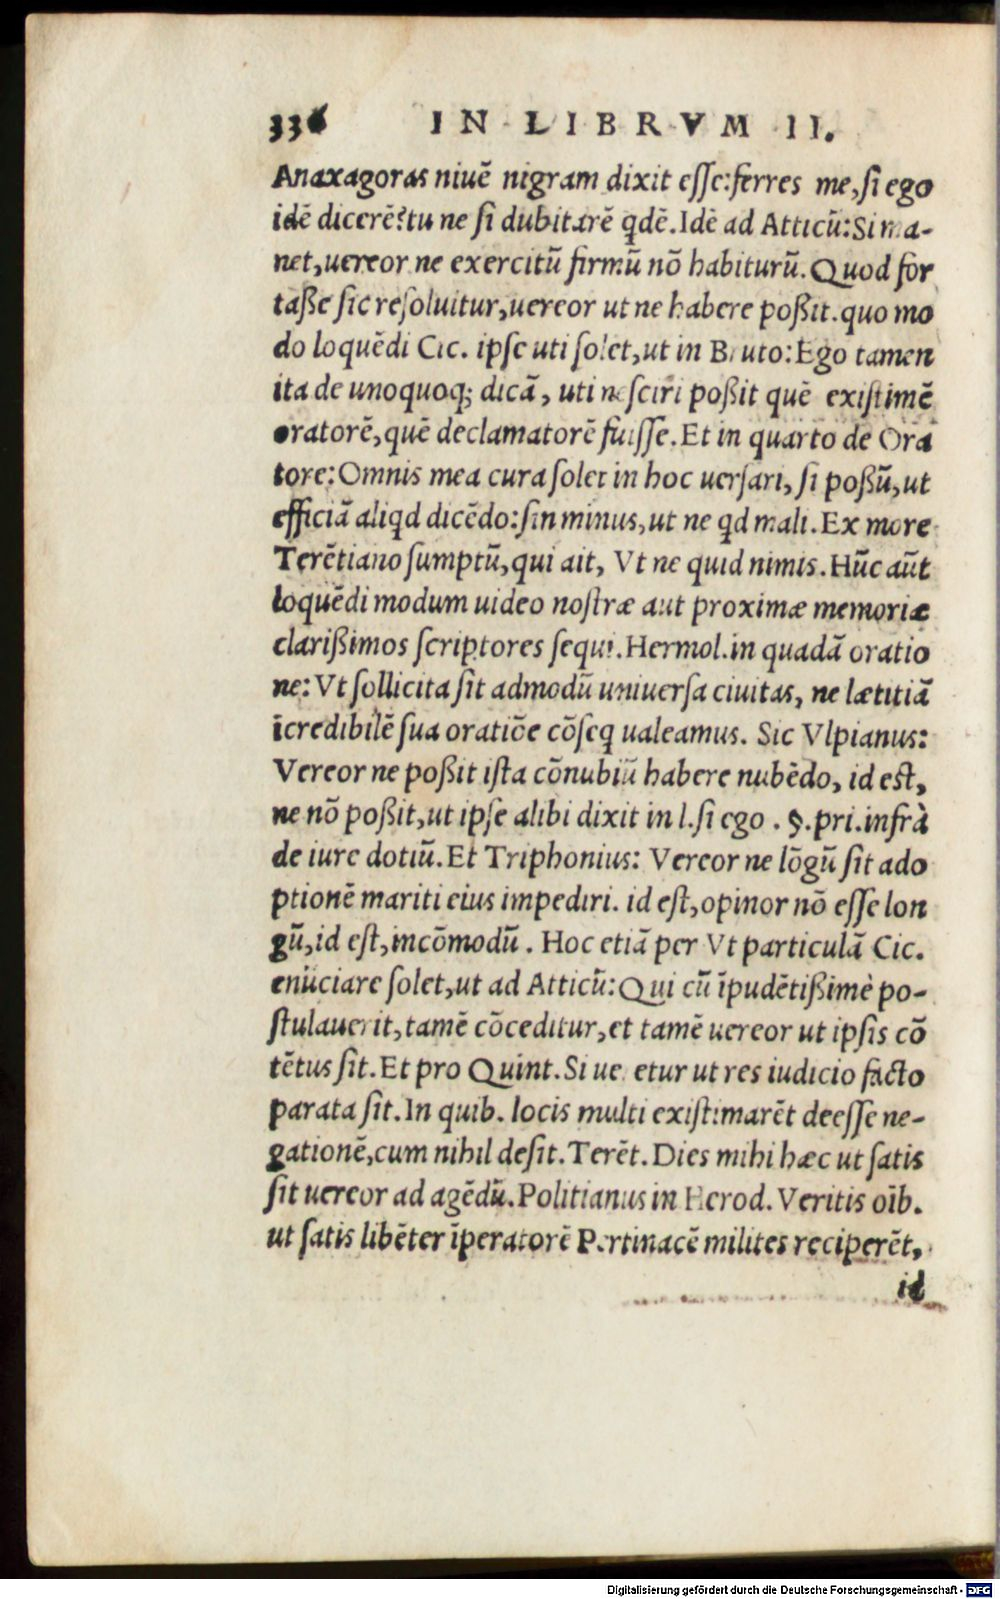 336 IN LIBRVM II.
Anaxagoras niuē nigram dixit esse:ferres me,si ego
idē dicerē?tu ne si dubitarē qdē.Idē ad Atticū:Si ma-
net,uereor ne exercitū firmū nō habiturū.Quod for
taße sic resoluitur,uereor ut ne habere poßit.quo mo
do loquēdi Cic. ipse uti solet,ut in Bruto:Ego tamen
ita de unoquoq; dicā, uti nesciri poßit quē existimē
oratorē,quē declamatorē fuisse.Et in quarto de Ora
tore:Omnis mea cura solet in hoc uersari, si poßū,ut
efficiā aliqd dicēdo:sin minus,ut ne qd mali.Ex more
Terētiano sumptū,qui ait, Vt ne quid nimis.Hūc aūt
loquēdi modum uideo nostræ aut proximæ memoriæ
clarißimos scriptores sequi.Hermol.in quadā oratio
ne:Vt sollicita sit admodū uniuersa ciuitas, ne lætitiā
īcredibilē sua oratiōe cōseq ualeamus. Sic Vlpianus:
Vereor ne poßit ista cōnubiū habere nubēdo, id est,
ne nō poßit,ut ipse alibi dixit in l.si ego . §.pri.infrà
de iure dotiū.Et Triphonius: Vereor ne lōgū sit ado
ptionē mariti eius impediri. id est,opinor nō esse lon
gū,id est,incōmodū. Hoc etiā per Vt particulā Cic.
enūciare solet,ut ad Atticū:Qui cū īpudētißimè po-
stulauerit,tamē cōceditur,et tamē uereor ut ipsis cō
tētus sit.Et pro Quint.Si ue etur ut res iudicio facto
parata sit.In quib. locis multi existimarēt deesse ne-
gationē,cum nihil desit.Terēt.Dies mihi hæc ut satis
sit uereor ad agēdū.Politianus in Herod.Veritis oīb.
ut satis libēter īperatorē Pertinacē milites reciperēt,
id
Digitalisierung gefördert durch die Deutsche Forschungsgemeinschaft - DFG